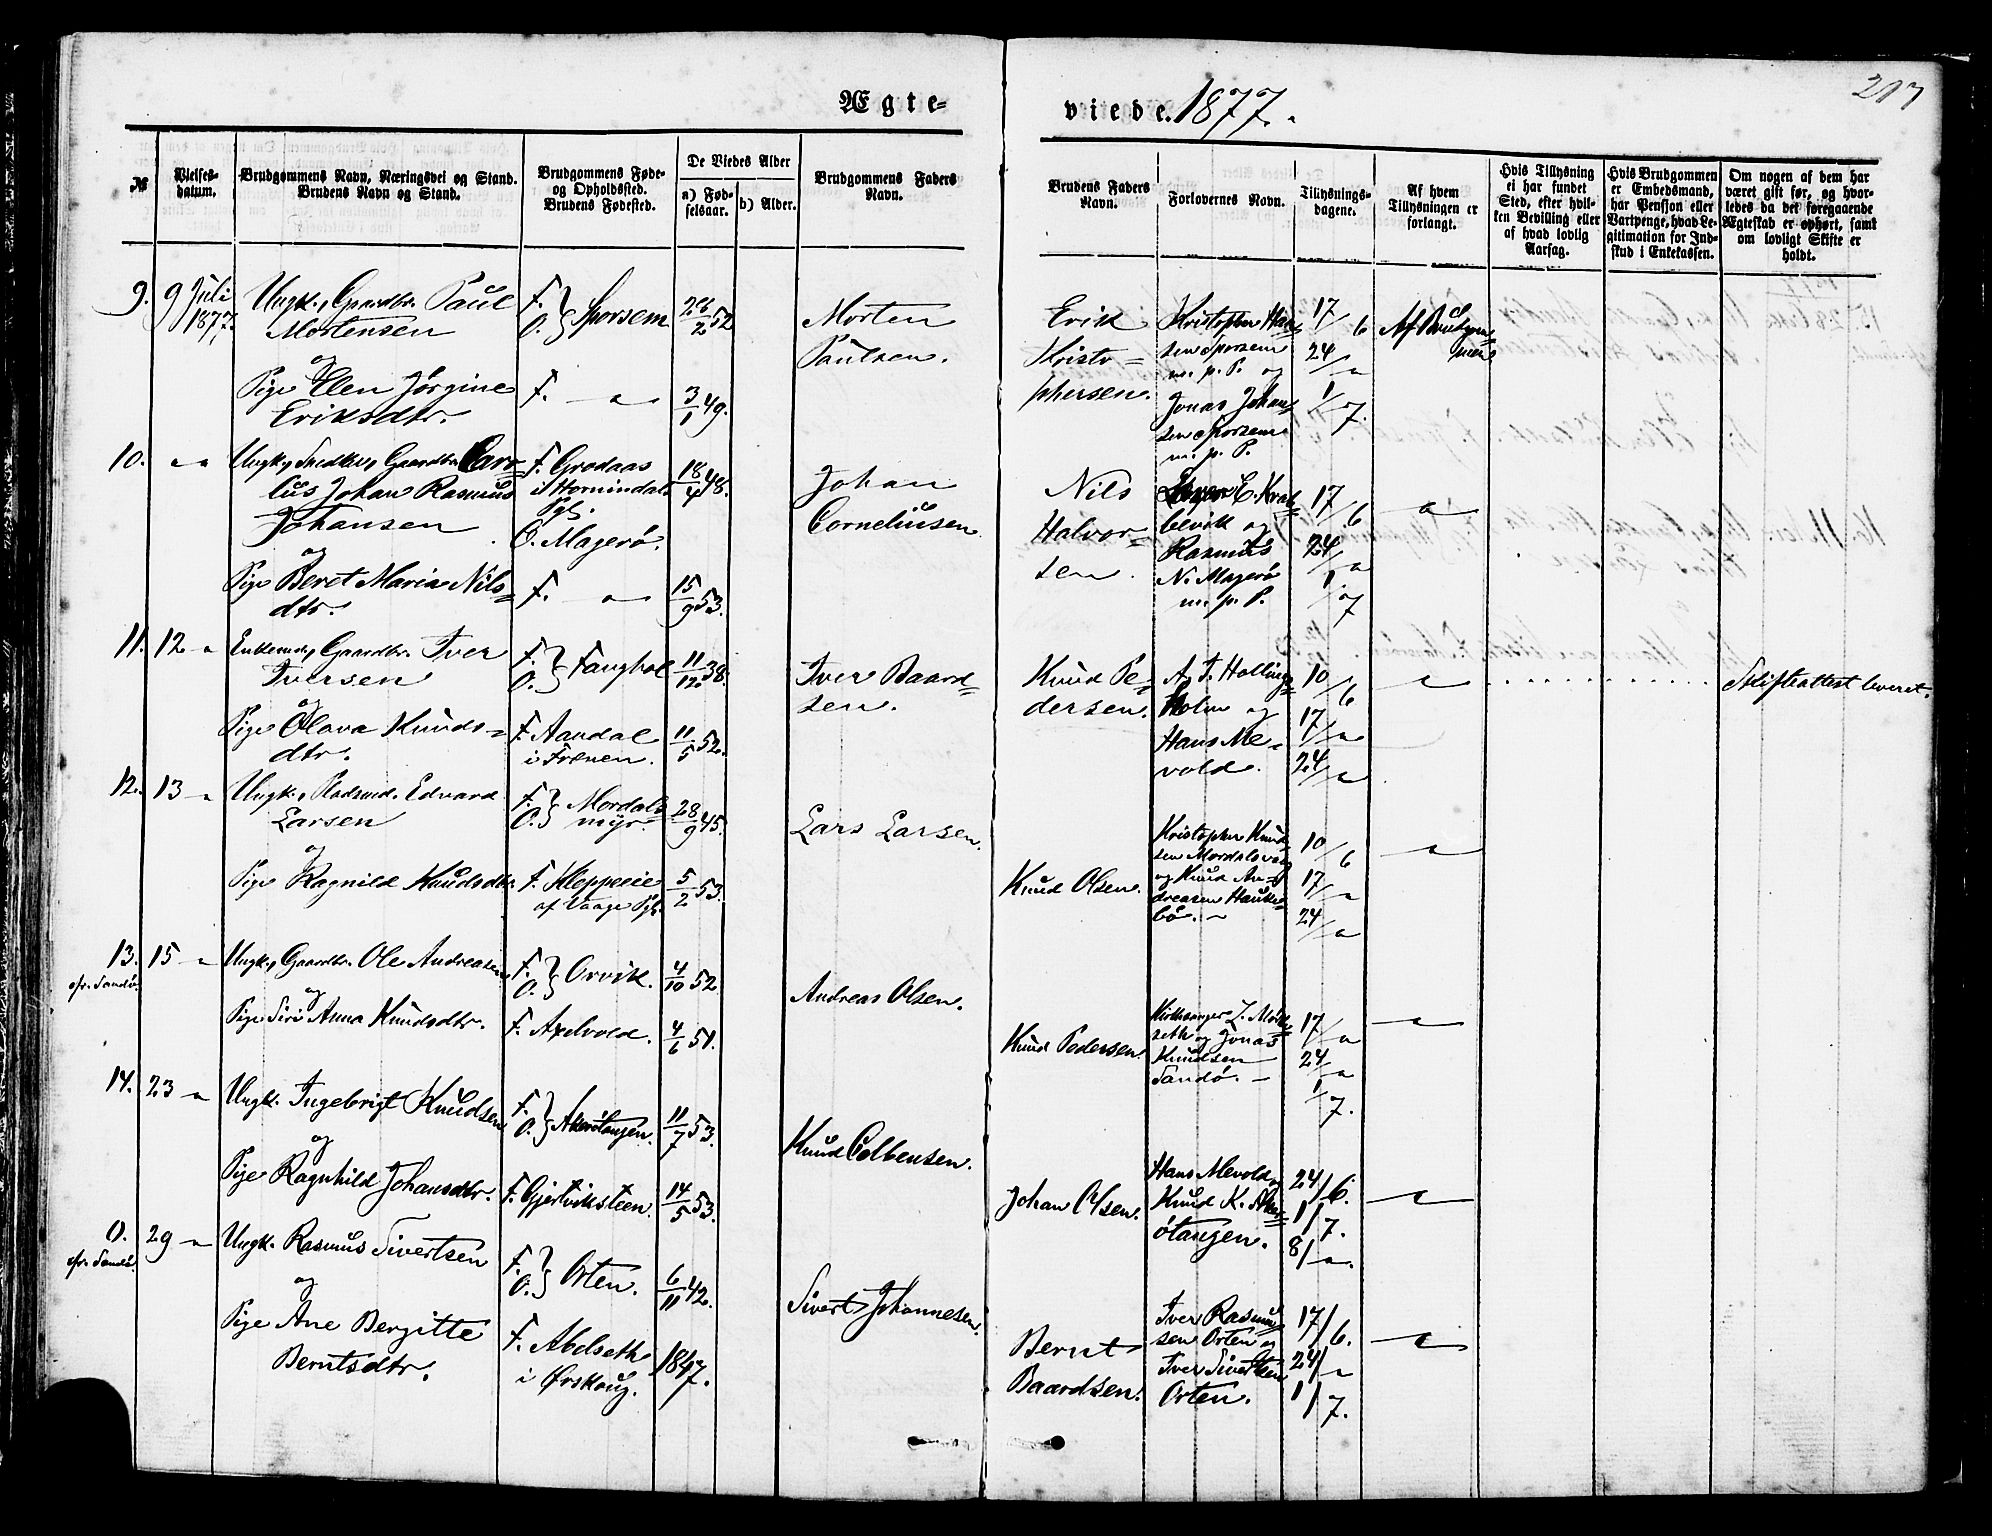 207
Ægte-
viede. 1877.
№
Vielses-
datum.
Brudgommens Navn, Næringsvei og Stand.
Brudens Navn og Stand.
Brudgommens Føde-
og Opholdssted.
Brudens Fødested.
De Viedes Alder
a) Fød-
selsaar.
b) Alder.
Brudgommens Faders
Navn.
Brudens Faders
Navn.
Forlovernes Navn.
Tillysnings-
dagene.
Af hvem
Tillysningen er
forlangt.
Hvis Tillysning
ei har fundet
Sted, efter hvil-
ken Bevilling eller
af hvad lovlig
Aarsag.
Hvis Brudgommen
er Embedsmand,
har Pension eller
Vartpenge, hvad Le-
gitimation for Ind-
skud i Enkekassen.
Om nogen af dem har
været gift før, og hvor-
ledes da det foregaaende
Ægteskab er ophørt, samt
om lovligt Skifte er
holdt.
9.
9 Juli
1877.
Ungk., Gaardbr. Paul
Mortensen
og
Pige Elen Jørgine
Eriksdtr.
F.
O. } Sporsem
F. — " —
28/2 52
3/1 49.
Morten
Paulsen.
Erik
Kristo-
phersen.
Kristopher Han-
sen Sporsem
m. p. P. og
Jonas Johan-
sen Sporsem
m. p. P.
17/6
24/"
1/7.
Af Brudgom-
men
10.
" "
Ungk., Snedker, Gaardbr. Caro-
lus Johan Rasmus
Johansen
og
Pige Beret Maria Nils-
dtr.
F. Grodaas
i Hornindals
Pgl.
O. Magerø.
F. — " —
18/4 48.
15/9 53.
Johan
Corneliusen
Nils
Halvor-
sen.
E. Krak-
bevik og
Rasmus
N. Magerø
m. p. P.
17/6
24/"
1/7
— " —
11.
12 "
Enkemd., Gaardbr. Iver
Iversen
og
Pige Olava Knuds-
dtr.
F.
O. } Tanghol
F. Aandal
i Frænen.
11/12 38.
11/5 52.
Iver Baard-
sen.
Knud Pe-
dersen.
A. T. Holling-
holm og
Hans Me-
vold.
10/6
17/"
24/"
— " —
Skifteattest leveret.
12.
13 "
Ungk., Pladsmd. Edvard
Larsen
og
Pige Ragnild Knudsdtr.
F.
O. } Mordals
myr.
F. Kleppeeie
af Vaage Pgl.
28/9 45.
5/2 53.
Lars Larsen.
Knud Olsen.
Kristopher Knud-
sen Mordalsvaag
og Knud An-
dreasen Hauke-
bø. —
10/6
17/"
24/"
— " —
13.
cfr. Sandø.
15 "
Ungk., Gaardbr. Ole Andreasen
og
Pige Siri Anna Knudsdtr.
F.
O. } Orvik.
F. Axelvold.
4/10 52
4/6 51.
Andreas Olsen.
Knud Pedersen.
Kirkesanger Z. Mork-
seth og Jonas
Knudsen
Sandø. —
17/"
24/"
1/7.
— " —
14.
23 "
Ungk. Ingebrigt Knudsen
og
Pige Ragnhild Johansdtr.
F.
O. } Akerøtangen.
F. Gjertviksteen.
11/7 53.
14/5 53.
Knud Colbensen.
Johan Olsen.
Hans Mevold og
Knud K. Aker-
øtangen.
24/6.
1/7.
8/".
— " —
0.
cfr. Sandø.
29 "
Ungk. Rasmus Sivertsen
og
Pige Ane Bergitte
Berntsdtr.
F.
O. } Orten.
F. Abelseth
i Ørskoug.
6/11 42.
1847.
Sivert Johannesen.
Bernt
Baardsen.
Iver Rasmus-
sen Orten og
Iver Sivertsen
Orten.
17/6.
24/"
1/7.
— " —